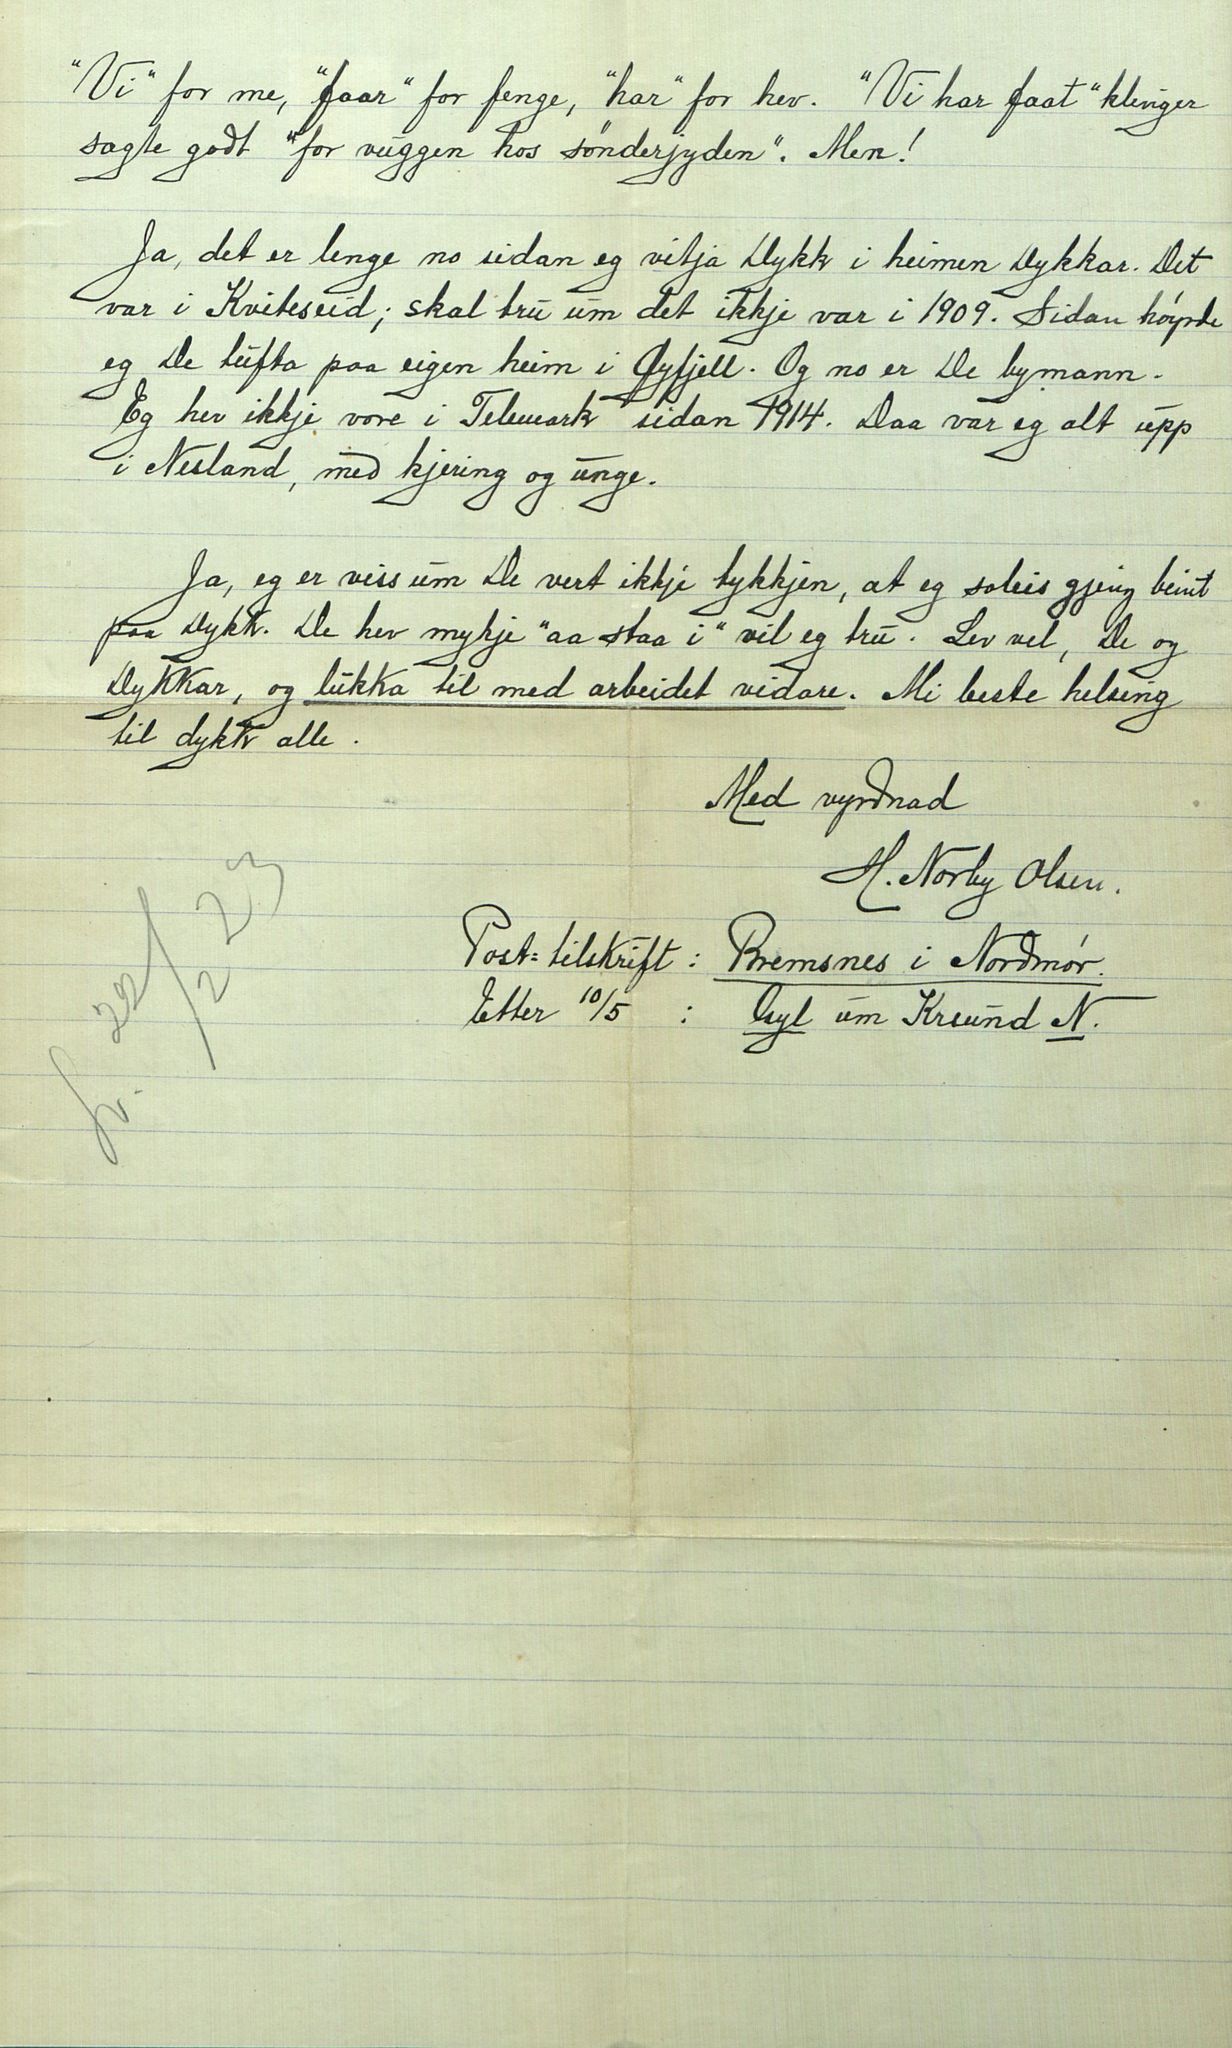 "Vi" for me, "faar" for fenge, "har" for hev. "Vi har faat" klinger
sagte godt "for vuggen hos sønderjyden". Men!
Ja, det er lenge no sidan eg vitja Dykk i heimen Dykkar. Det
var i Kviteseid; skal tru um det ikkje var i 1909. Sidan høyrde
eg De tufta paa eigen heim i Øyfjell. Og no er De bymann.
Eg hev ikkje vore i Telemark sidan 1914. Daa var eg alt upp
i Nesland, med kjering og unge.
Ja, eg er viss um De vert ikkje tykkjen, at eg soleis gjeng beint
paa Dykk. De hev mykje "aa staa i" vil eg tru. Lev vel, De og
Dykkar, og lukka til med arbeidet vidare. Mi beste helsing
til dykk alle.
Med vyrdnad
H. Norby Olsen.
Post=tilskrift: Bremsnes i Nordmør.
Etter 10/5 : Gyl um Krsund N.
Sv. 22/2 23